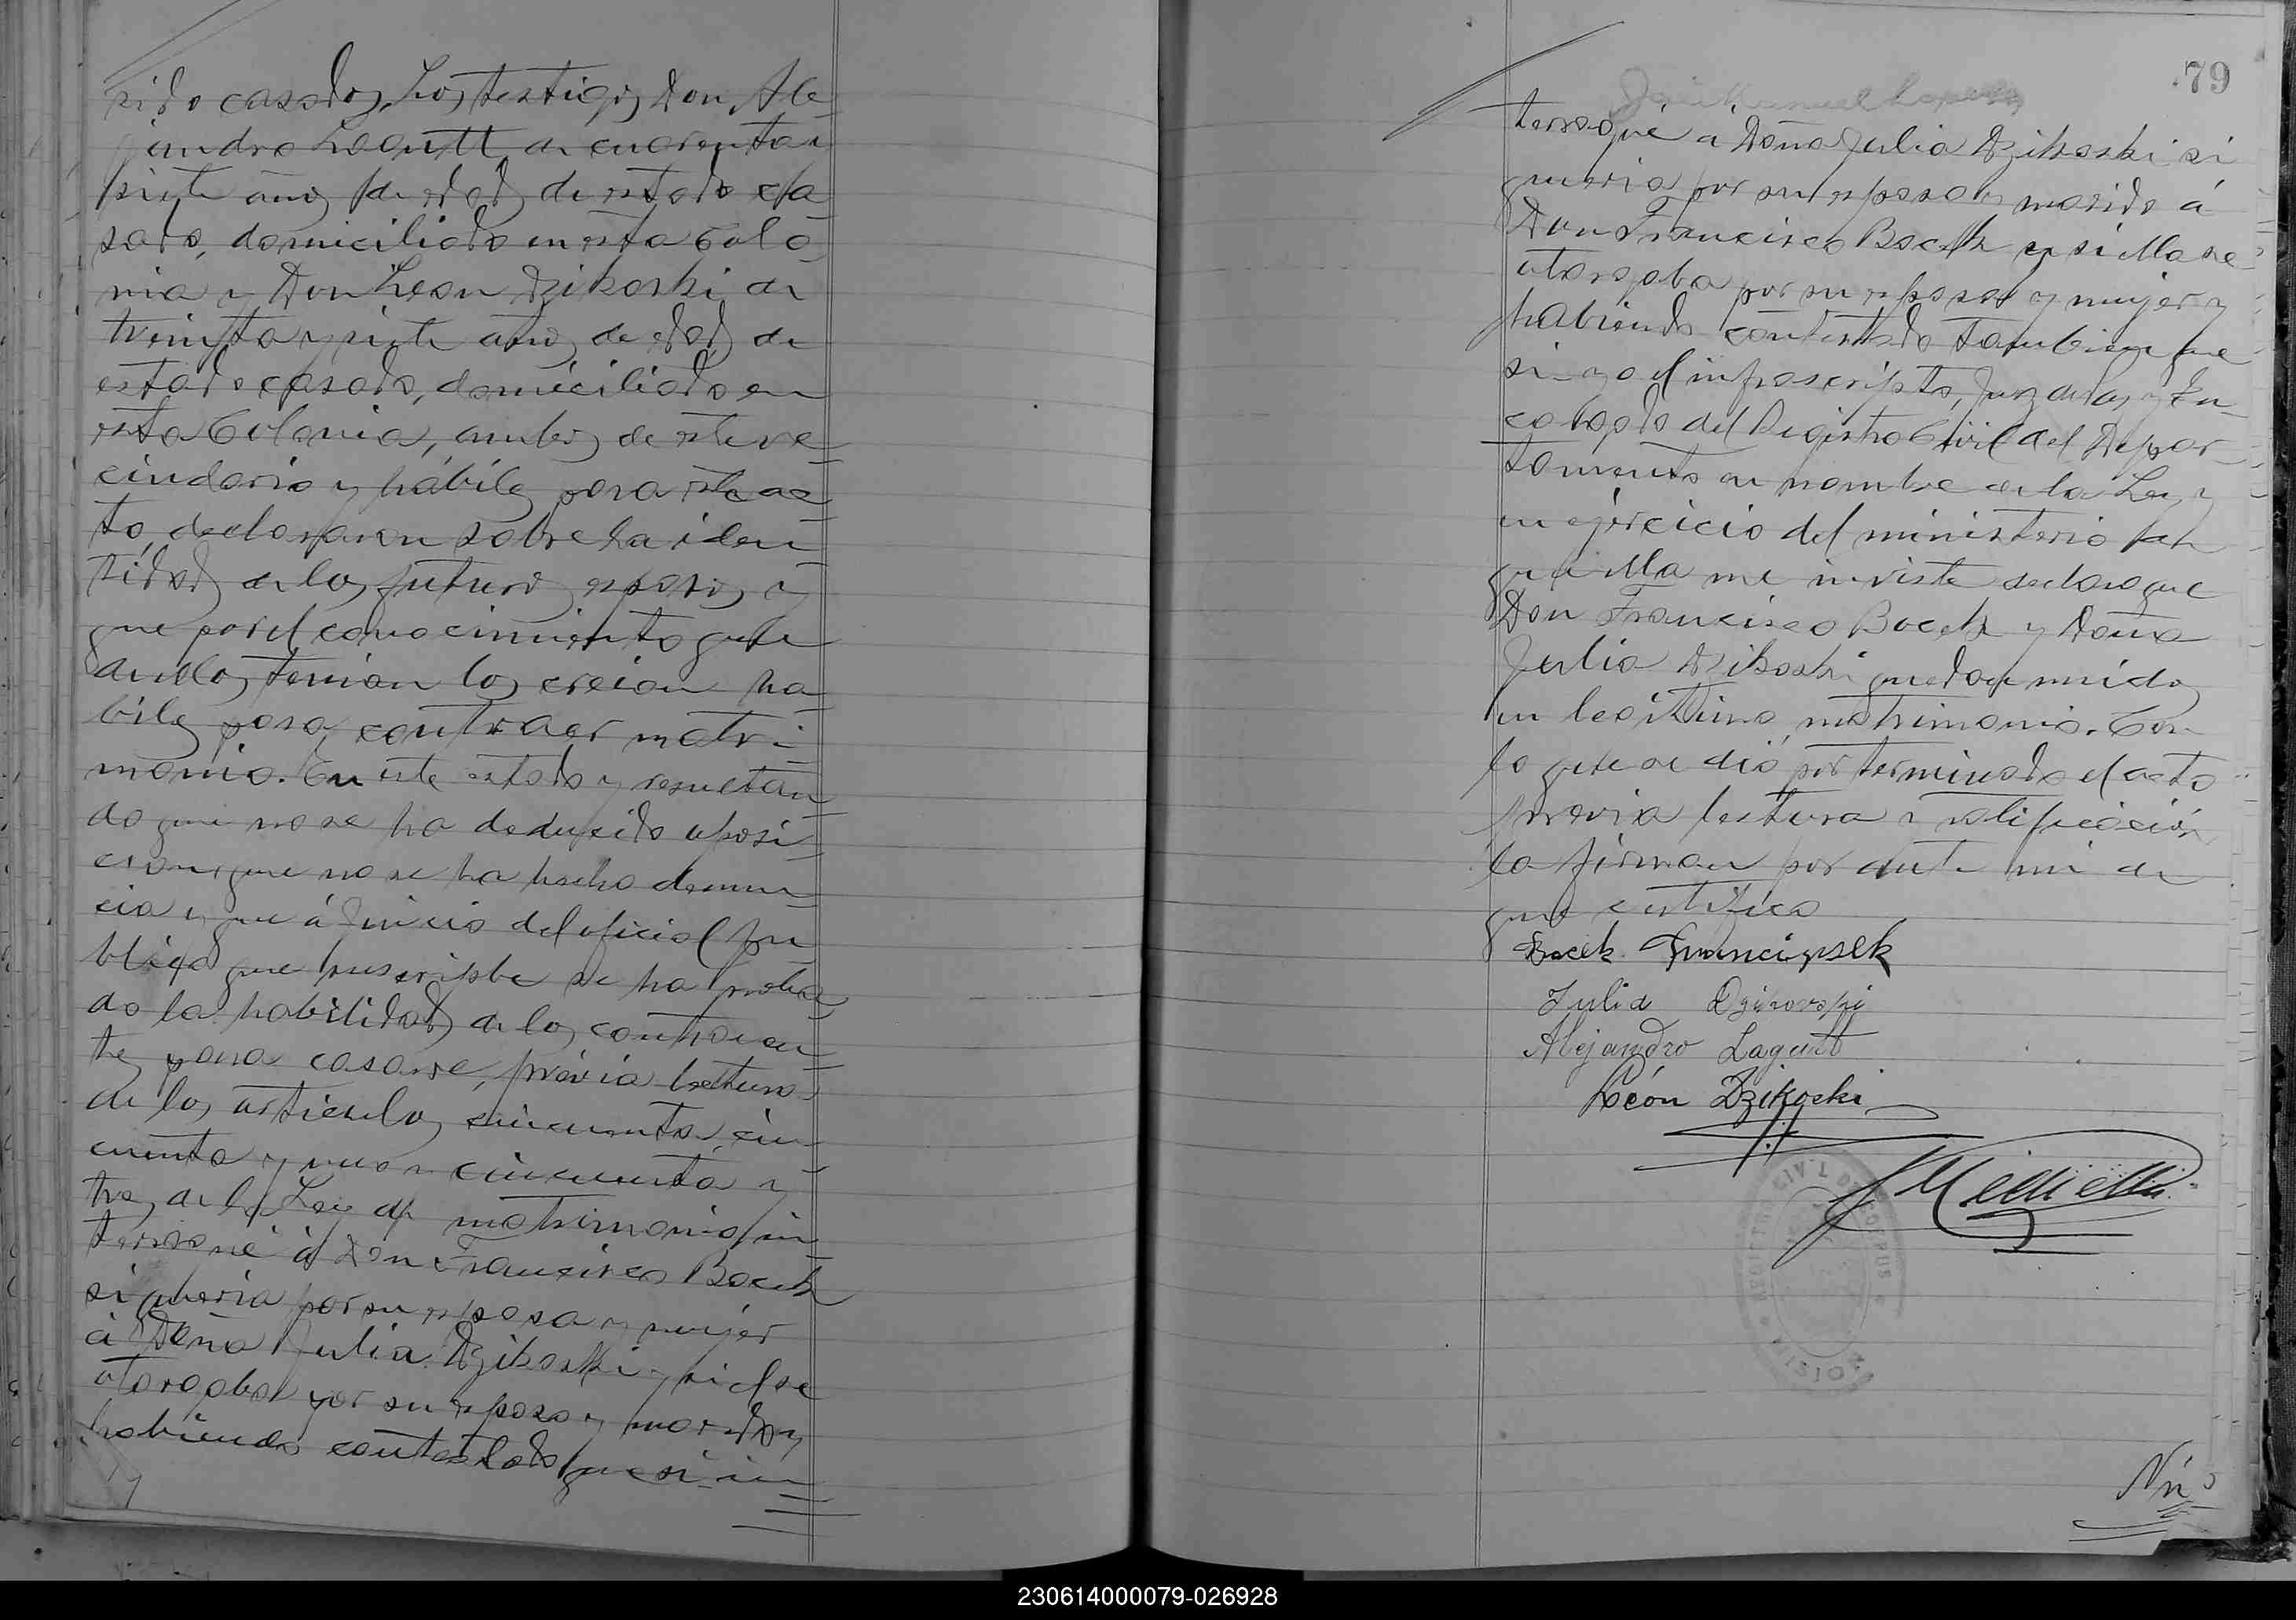 sido casados, Los testigos Don Ale
jandro Lagutt de cuarenta y
siete años de edad de estado ca
sado, domiciliado en esta Colo
nia y Don Leon Dzikoski de
treinta y siete años de edad de
estado casado, domiciliado en
esta Colonia, ambos de este ve
cindario y hábiles para este ac
to, declararon sobre la iden
tidad de los futuros esposos y
que por el conocimiento que
de ellos tenian los creian ha
biles para contraer matri
monio. En este estado y resultan
do que no se ha deducido oposi
cion y que no se ha hecho denun
cia y que á juicio del oficial pu
blico que suscribe se ha proba
do la habilidad de los contrayen
tes para casarse, prévia lectura
de los articulos cincuenta, cin
cuenta y uno y cincuenta y
tres de la Ley de matrimonio in
terrogué á Don Francisco Bocek
si queria por su esposa y mujer
á Doña Julia Dzikoski y si el se
otorgaba por su esposo y marido y
habiendo contestado que si in
79
terrogué á Doña Julia Dzikoski si
queria por su esposo y marido á
Don Francisco Bocek y si ella se
otorgaba por su esposa y mujer y
habiendo contestado tambien que
si yo el infrascripto, Juez de Paz y En
cargado del Registro Civil del Depar
tamento en nombre de la Ley y
en ejercicio del ministerio
que ella me inviste declaro que
Don Francisco Bocek y Doña
Julia Dzikoski quedan unidos
en legitimo matrimonio. Con
lo que se dió por terminado el acto
previa lectura y ratificación
la firman por ante mi de
que certifico
Bocek Franciszek
Julia Dzikovski
Alejandro Lagutt
León Dzikoski
230614000079-026928